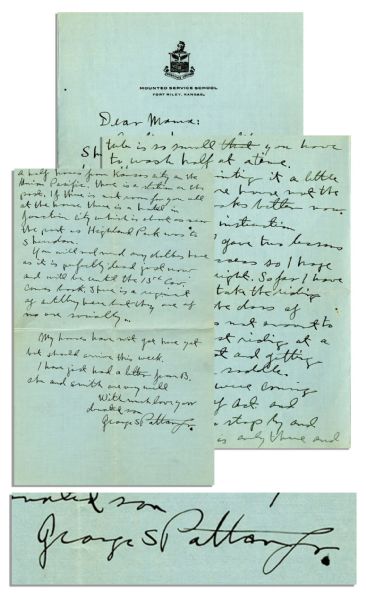 MOUNTED SERVICE SCHOOL
FORT RILEY, KANSAS.
Dear Mama:
tub is so small that you have
to wash half at a time.
it a little
house not the
looks better now.
instruction
I gave two lessons
so I hope
right. So far I have
take the riding
the dose of
is not amount to
riding at a
and getting
saddle.
were coming
of Oct. and
stop by and
is only there and
a half hours from Kansas city on the
Union Pacific. There is a station on the
post. If there is not room for you all
at the house there is a hotel in
Junction City which is about as near
the post as Highland Park was to
Sheridan.
You will not need any clothes here
as it is perfectly dead just now
and will be until the 13th Cav.
comes back. There is a regiment
of artillery here but they are of
no use socially.
My horses have not got here yet
but should arrive this week.
I have just had a letter from B.
she and Smith are very well
With much love your
devoted son
George S Patton Jr.
devoted son
George S Patton Jr.